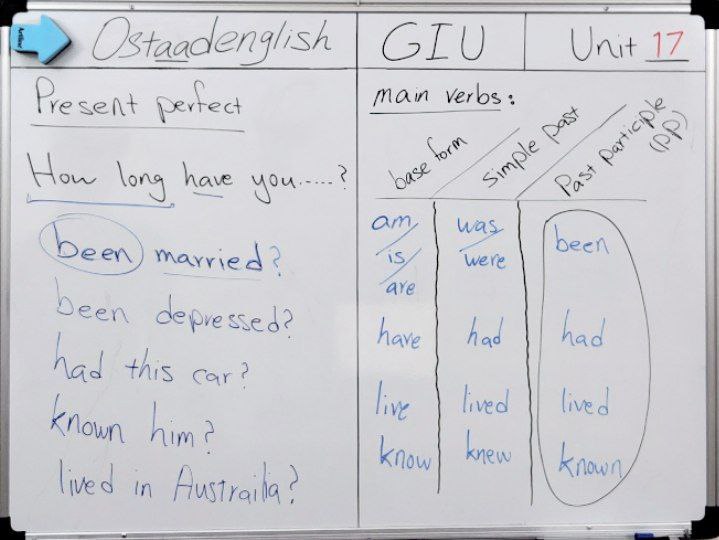 Ostaadenglish
GIU
Unit 17
Present perfect
How long have you.....?
been married?
been depressed?
had this car?
known him?
lived in Austrailia?
main verbs:
base form
simple past
Past participle
(pp)
am
is
are
was
were
been
have
had
had
live
lived
lived
know
knew
known